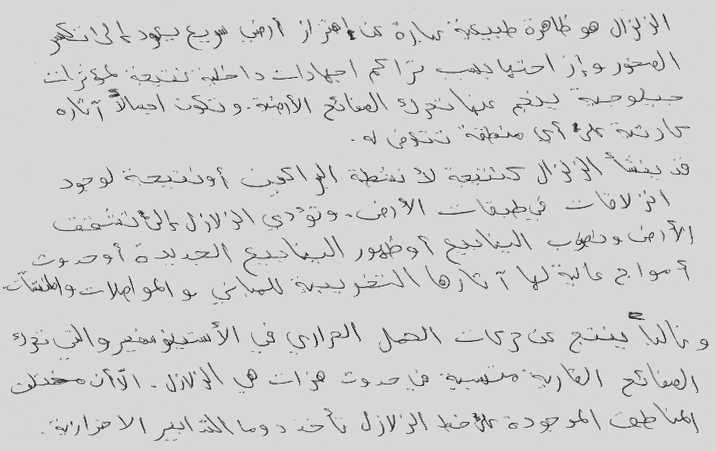 الزلزال هو ظاهرة طبيعية عبارة عن اهتزاز أرضي سريع يعود إلى تكسر
الصخور وإزاحتها بسبب تراكم اجهادات داخلية نتيجة لمؤثرات
جيلوجية ينجم عنها تحرك الصفائح الأرضية. وتكون اجمالاً آثاره
كارثية على أي منطقة تتعرض له.
قد ينشأ الزلزال كنتيجة لأنشطة البراكين أو نتيجة لوجود
انزلاقات في طبقات الأرض. وتؤدي الزلازل إلى تشقق
الأرض ونضوب الينابيع أو ظهور الينابيع الجديدة أو حدوث
أمواج عالية لها آثارها التخريبية للمباني والمواصلات والمنشآت
وغالباً ينتج عن حركات الحمل الحراري في الأستينوسفير والتي تحرك
الصفائح القارية متسببة في حدوث هزات هي الزلازل. الآن مختلف
المناطق الموجودة على خط الزلازل تأخذ دوما التدابير الاحترازية.